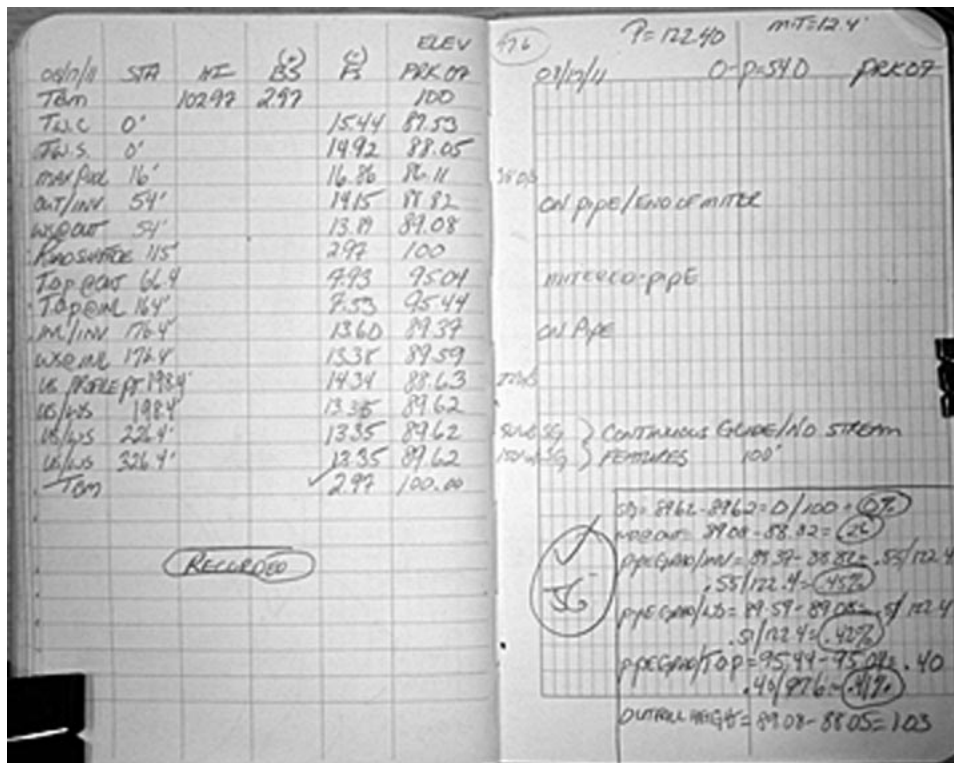 ELEV
08/17/11 STA HI (+) BS (-) FS PRK07
TBM 102.97 2.97 100
T.W.C 0' 15.44 87.53
T.W.S. 0' 14.92 88.05
MAX POOL 16' 16.86 86.11
OUT/INV 54' 14.15 88.82
WS@OUT 54' 13.89 89.08
ROAD SURFACE 115' 2.97 100
T.O.P @OUT 66.4 7.93 95.04
T.O.P @INL 164' 7.53 95.44
INL/INV 176.4' 13.60 89.37
WS@INL 176.4' 13.38 89.59
US PROFILE PT 198.4' 14.34 88.63
US/WS 198.4' 13.35 89.62
US/WS 226.4' 13.35 89.62
US/WS 326.4' 13.35 89.62
TBM ✓ 2.97 100.00
RECORDED
97.6 P=122.40 MIT=12.4'
08/17/11 O-P=54.0 PRK07
ON PIPE/END OF MITER
MITERED-PIPE
ON PIPE
} CONTINUOUS GLIDE/NO STREAM
} FEATURES 100'
✓
JG
=89.62-89.62=0/100=0%
WD@OUT= 89.08-88.82=.26
PIPE GRAD/INV=89.37-88.82=.55/122.4
.55/122.4=.45%
PIPE GRAD/WD=89.59-89.08=.51/122.4
.51/122.4=.42%
PIPE GRAD/TOP=95.44-95.04=.40
.40/97.6=.41%
OUTFALL HEIGHT=89.08-88.05=1.03